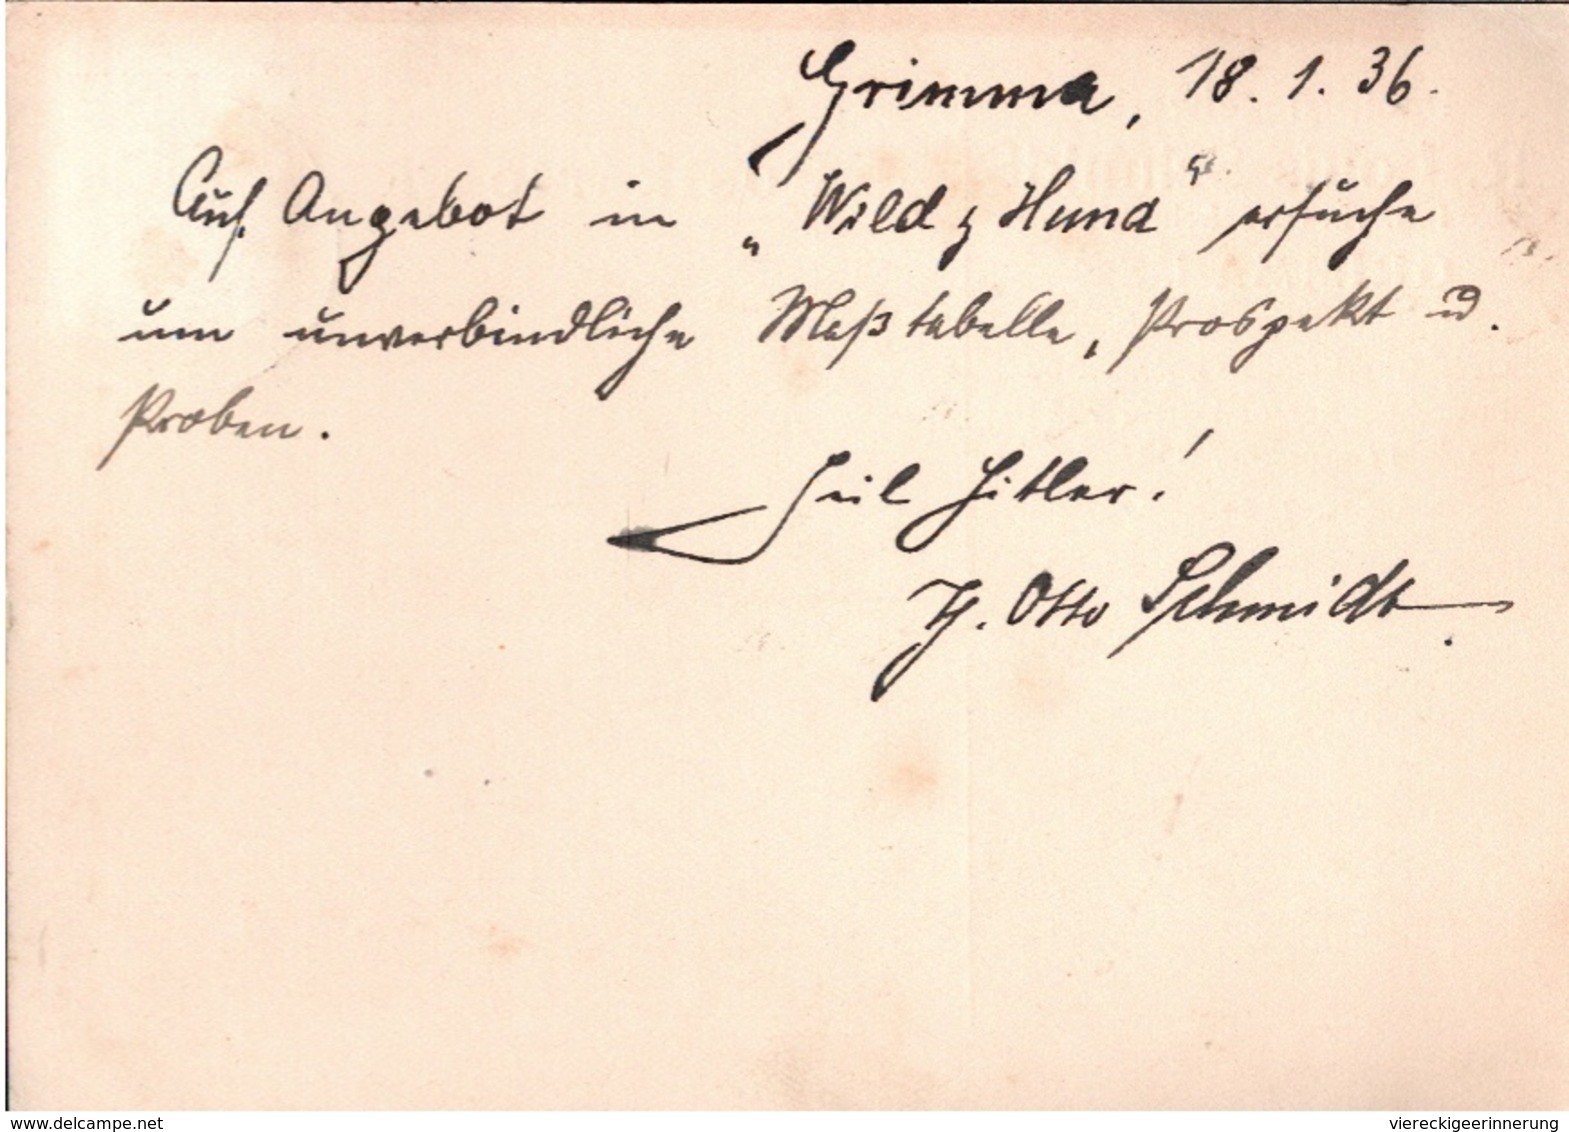 Grimma, 18. 1. 36.
Auf Angebot in „Wild & Hund" ersuche
um unverbindliche Maßtabelle, Prospekt u.
Proben.
Heil Hitler!
Otto Schmidt
www.delcampe.net
viereckigeerinnerung